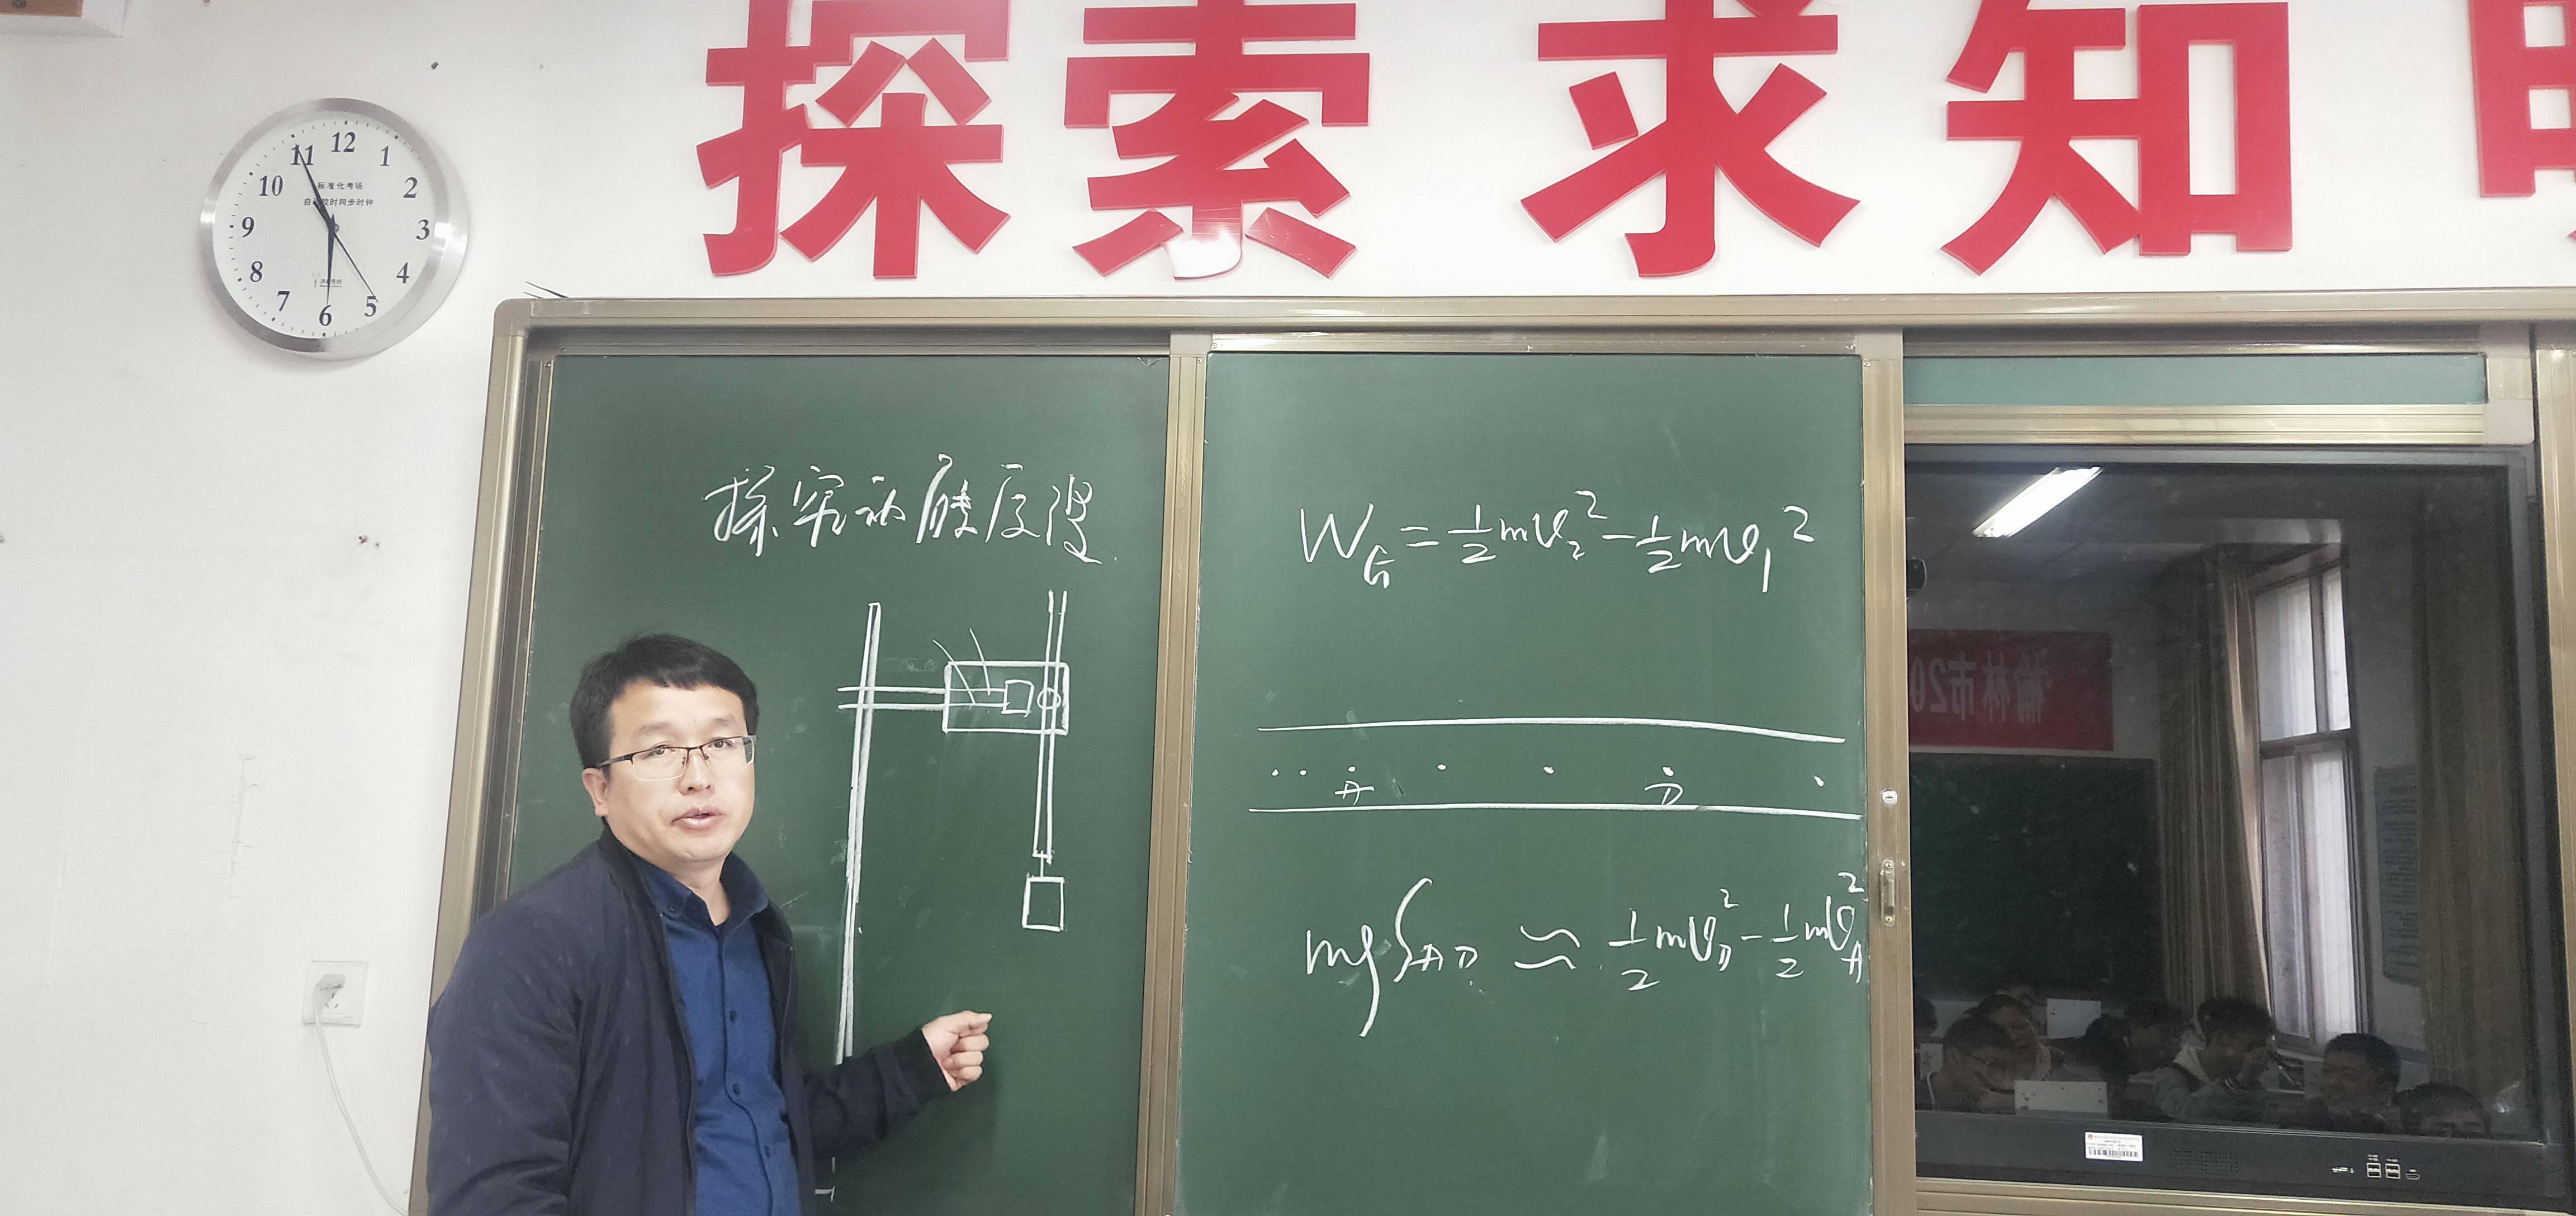 探索 求知
12
11 1
10 2
9 3
8 4
7 5
6
标准化考场
自动校时同步时钟
探究动能定理
W_G = 1/2 mv₂² - 1/2 mv₁²
A D
mgS_AD ≈ 1/2 mv_D² - 1/2 mv_A²
榆林市20